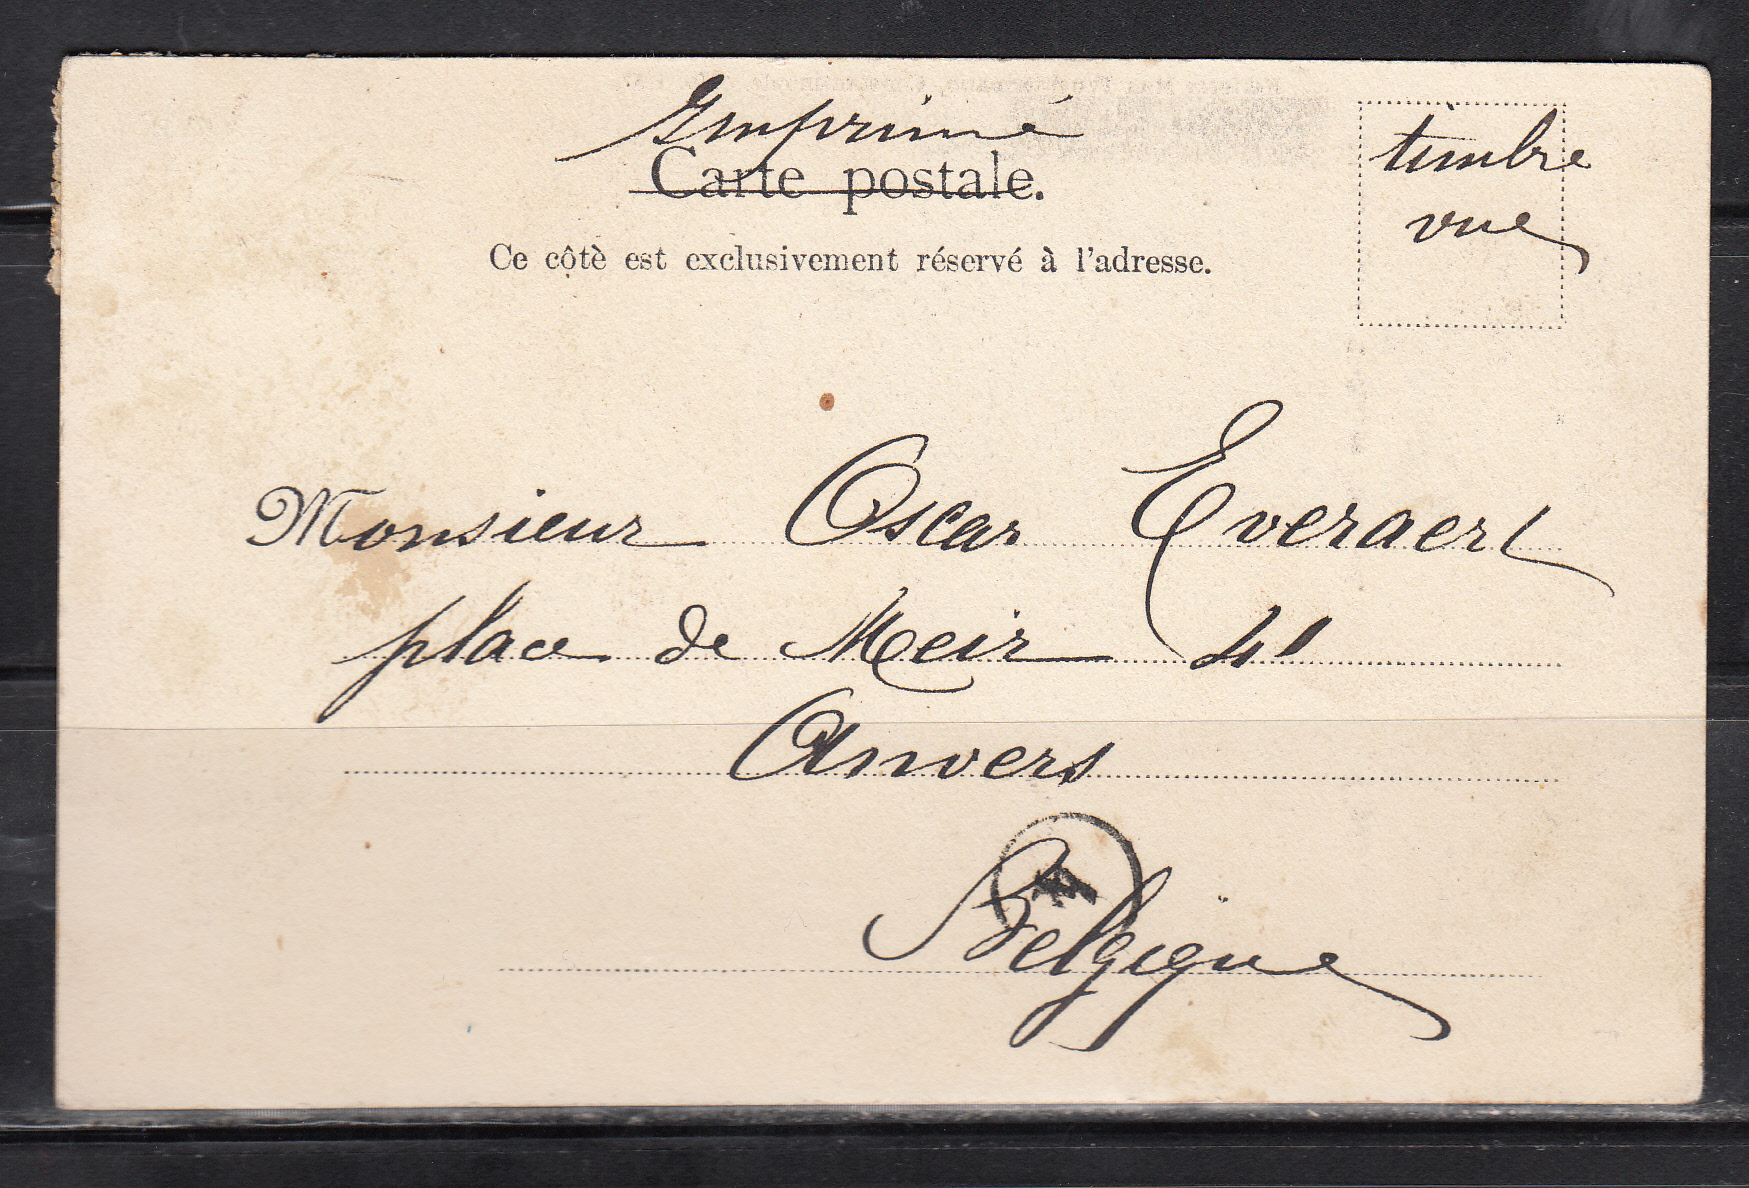 Imprimé
Carte postale.
timbre
vue
Ce côtè est exclusivement réservé à l'adresse.
Monsieur Oscar Everaert
place de Meir 41
Anvers
Belgique